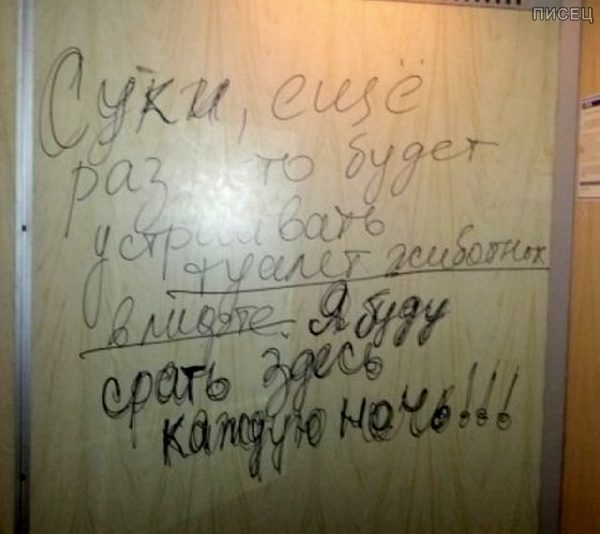 ПИСЕЦ
Суки, ещё
раз то будет
устраивать
туалет животных
в лифте. Я буду
срать здесь
каждую ночь!!!